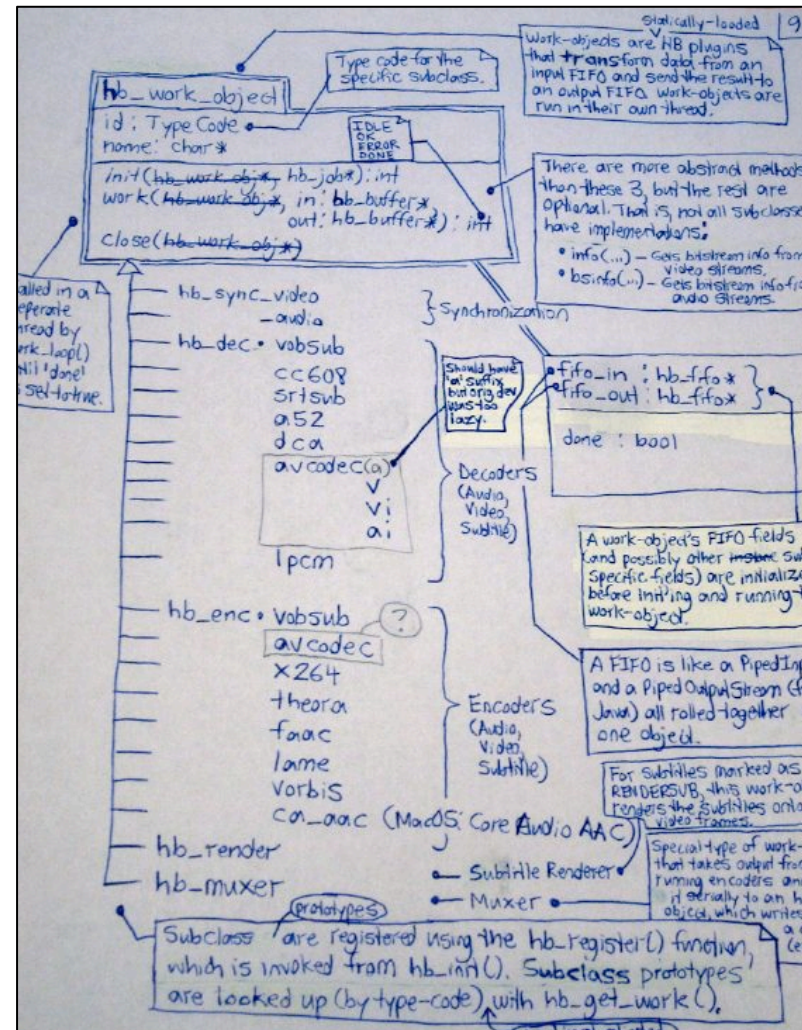 statically-loaded
9
Work-objects are HB plugins
that transform data from an
input FIFO and send the result to
an output FIFO. Work-objects are
run in their own thread.
Type code for the
specific subclass.
hb_work_object
id : TypeCode
name: char*
IDLE
OK
ERROR
DONE
init(hb_work_obj*, hb_job*): int
work(hb_work_obj*, in: hb_buffer*,
out: hb_buffer*): int
close(hb_work_obj*)
There are more abstract methods
than these 3, but the rest are
optional. That is, not all subclasses
have implementations:
• info(...) – Gets bitstream info from
video streams.
• bsinfo(...) – Gets bitstream info
audio streams.
alled in a
eperate
hread by
rk_loop()
til 'done'
set to true.
hb_sync_video
_audio
} Synchronization
hb_dec • vobsub
cc608
srtsub
a52
dca
avcodec(a)
v
vi
ai
lpcm
Should have
'a' suffix
but orig. dev
was too
lazy.
Decoders
(Audio,
Video,
Subtitle)
fifo_in : hb_fifo*
fifo_out : hb_fifo*
done : bool
A work-object's FIFO fields
(and possibly other su
specific fields) are initializ
before init'ing and running
work-object.
hb_enc • vobsub
avcodec
?
x264
theora
faac
lame
vorbis
ca_aac (MacOS: Core Audio AAC)
Encoders
(Audio,
Video,
Subtitle)
A FIFO is like a PipedInp
and a PipedOutputStream (f
Java) all rolled together
one object.
For subtitles marked as
RENDERSUB, this work-o
renders the subtitles onto
video frames.
hb_render
hb_muxer
• Subtitle Renderer
• Muxer
Special type of work-
that takes output from
running encoders an
it serially to an h
object, which writes
a
(e
prototypes
Subclass are registered using the hb_register() function,
which is invoked from hb_init(). Subclass prototypes
are looked up (by type-code) with hb_get_work().